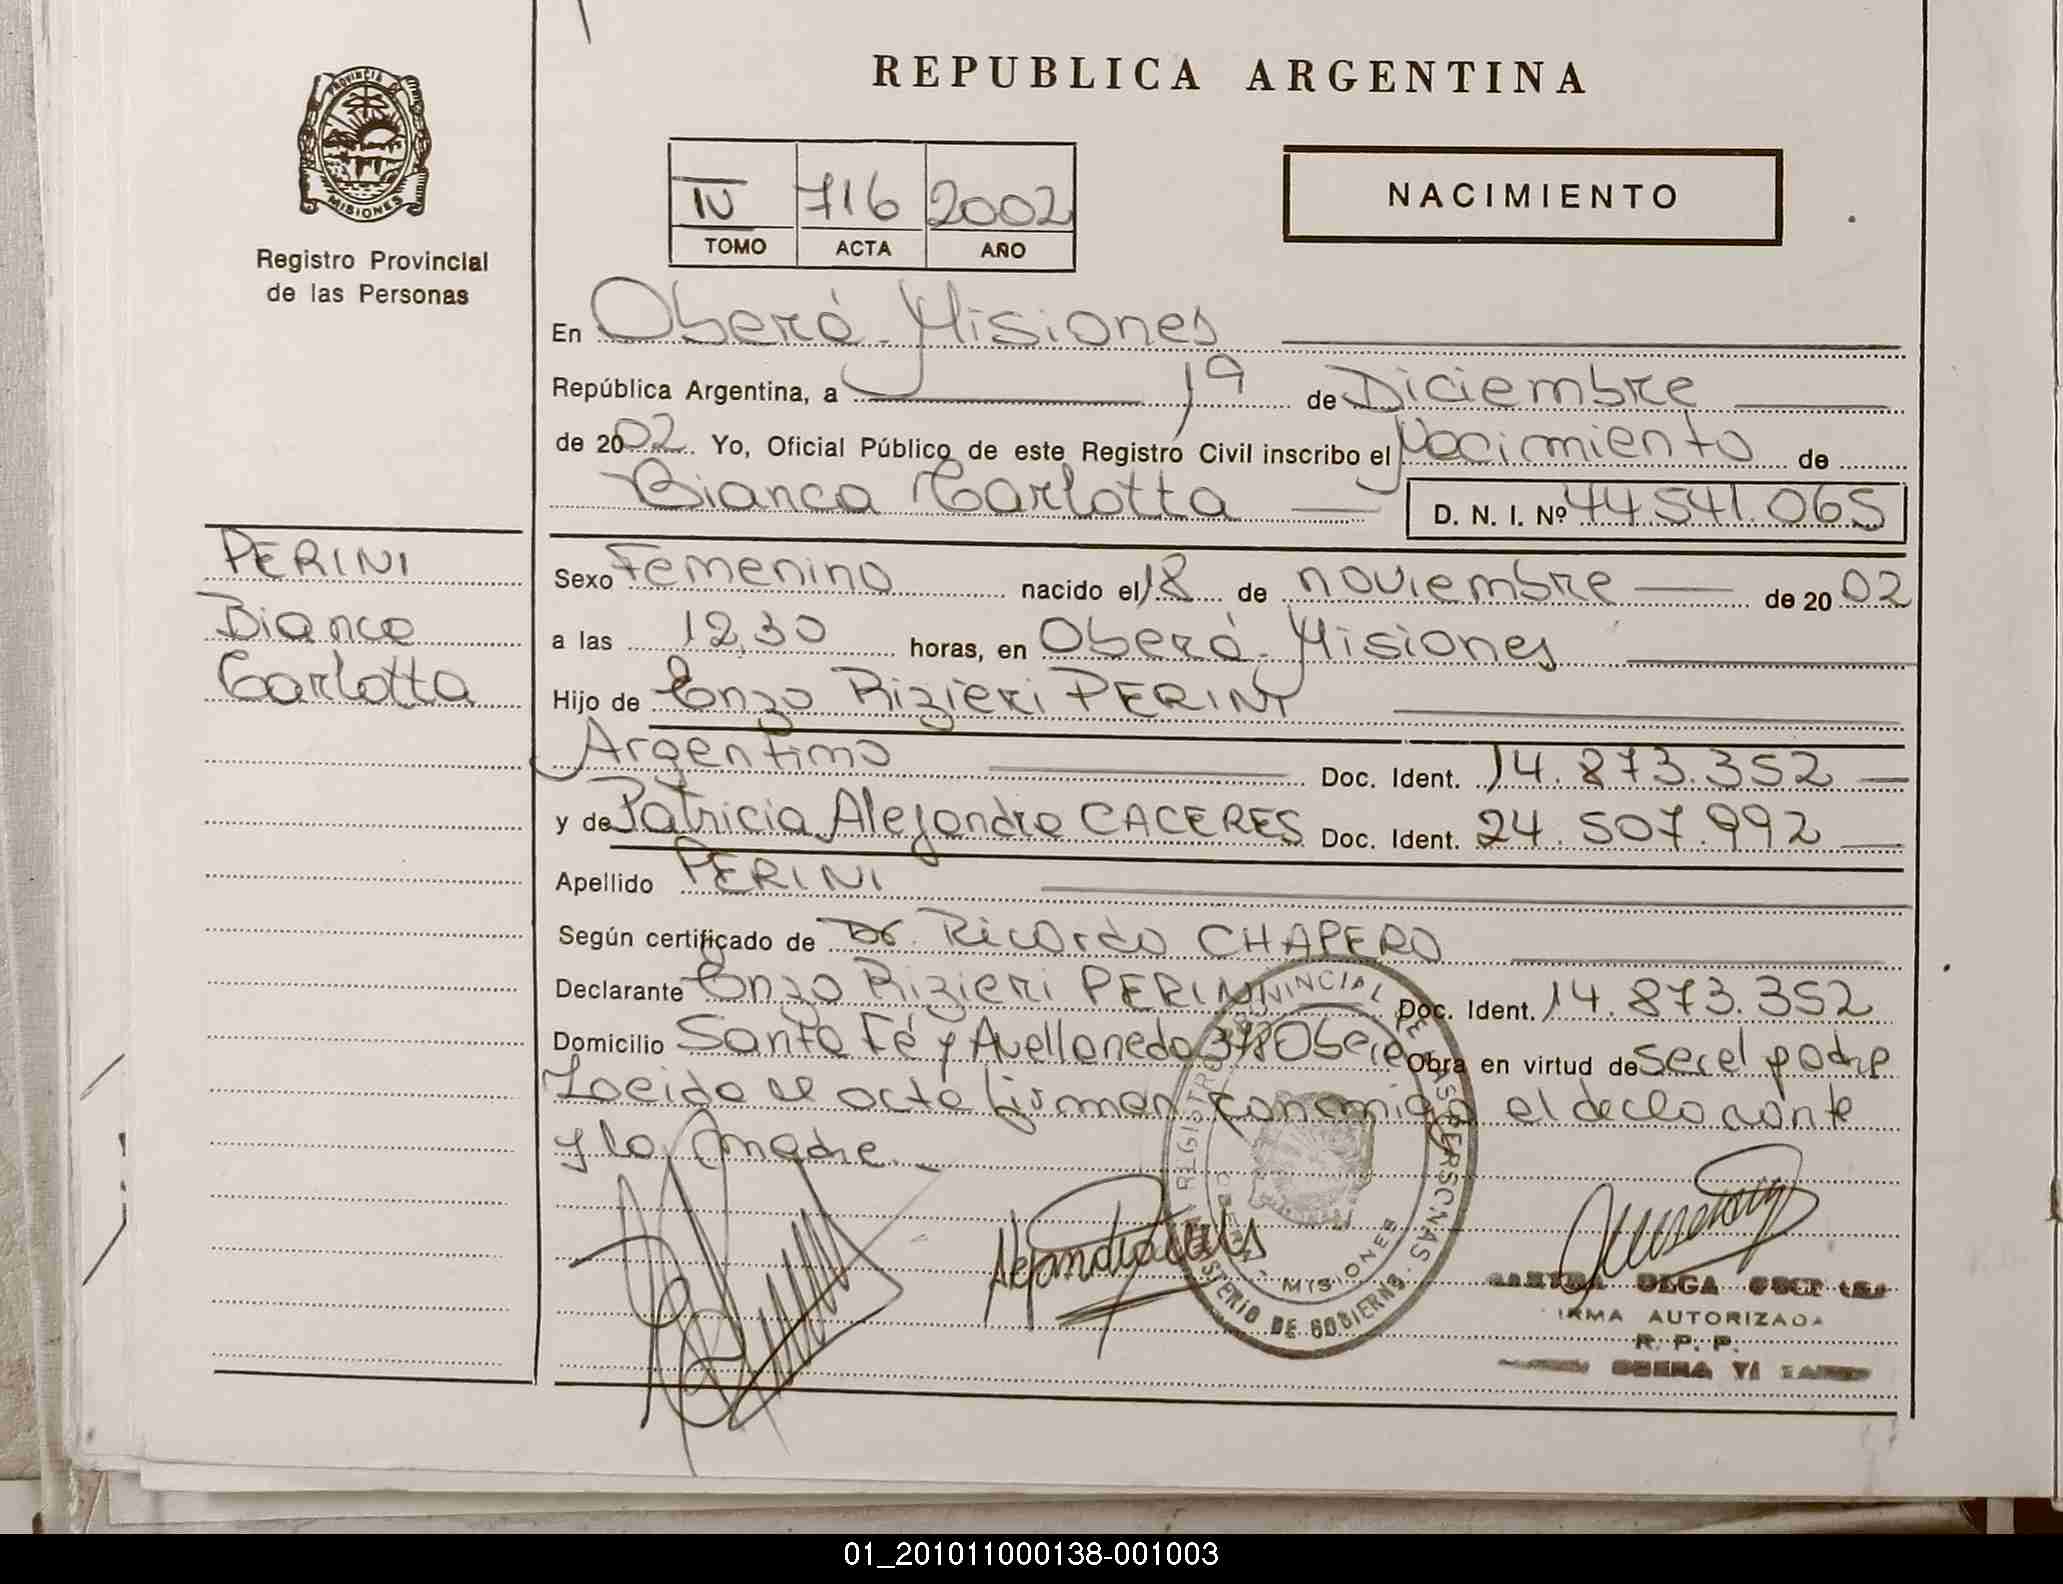 REPUBLICA ARGENTINA
PROVINCIA DE MISIONES
Registro Provincial
de las Personas
IV 716 2002
TOMO ACTA AÑO
NACIMIENTO
En Oberá - Misiones
República Argentina, a 19 de Diciembre
de 2002. Yo, Oficial Público de este Registro Civil inscribo el Nacimiento de
Bianca Carlotta D. N. I. Nº 44.541.065
PERINI
Bianca
Carlotta
Sexo Femenino nacido el 18 de noviembre de 2002
a las 12,30 horas, en Oberá - Misiones
Hijo de Enzo Rizieri PERINI
Argentino Doc. Ident. 14.873.352
y de Patricia Alejandra CACERES Doc. Ident. 24.507.992
Apellido PERINI
Según certificado de Dr. Ricardo CHAPERO
Declarante Enzo Rizieri PERINI Doc. Ident. 14.873.352
Domicilio Santa Fé y Avellaneda 378 Oberá Obra en virtud de ser el padre
Leida el acta firman conmigo el declarante
y la madre.
REGISTRO PROVINCIAL DE LAS PERSONAS
MINISTERIO DE GOBIERNO
MISIONES
OLGA
FIRMA AUTORIZADA
R. P. P.
01_201011000138-001003